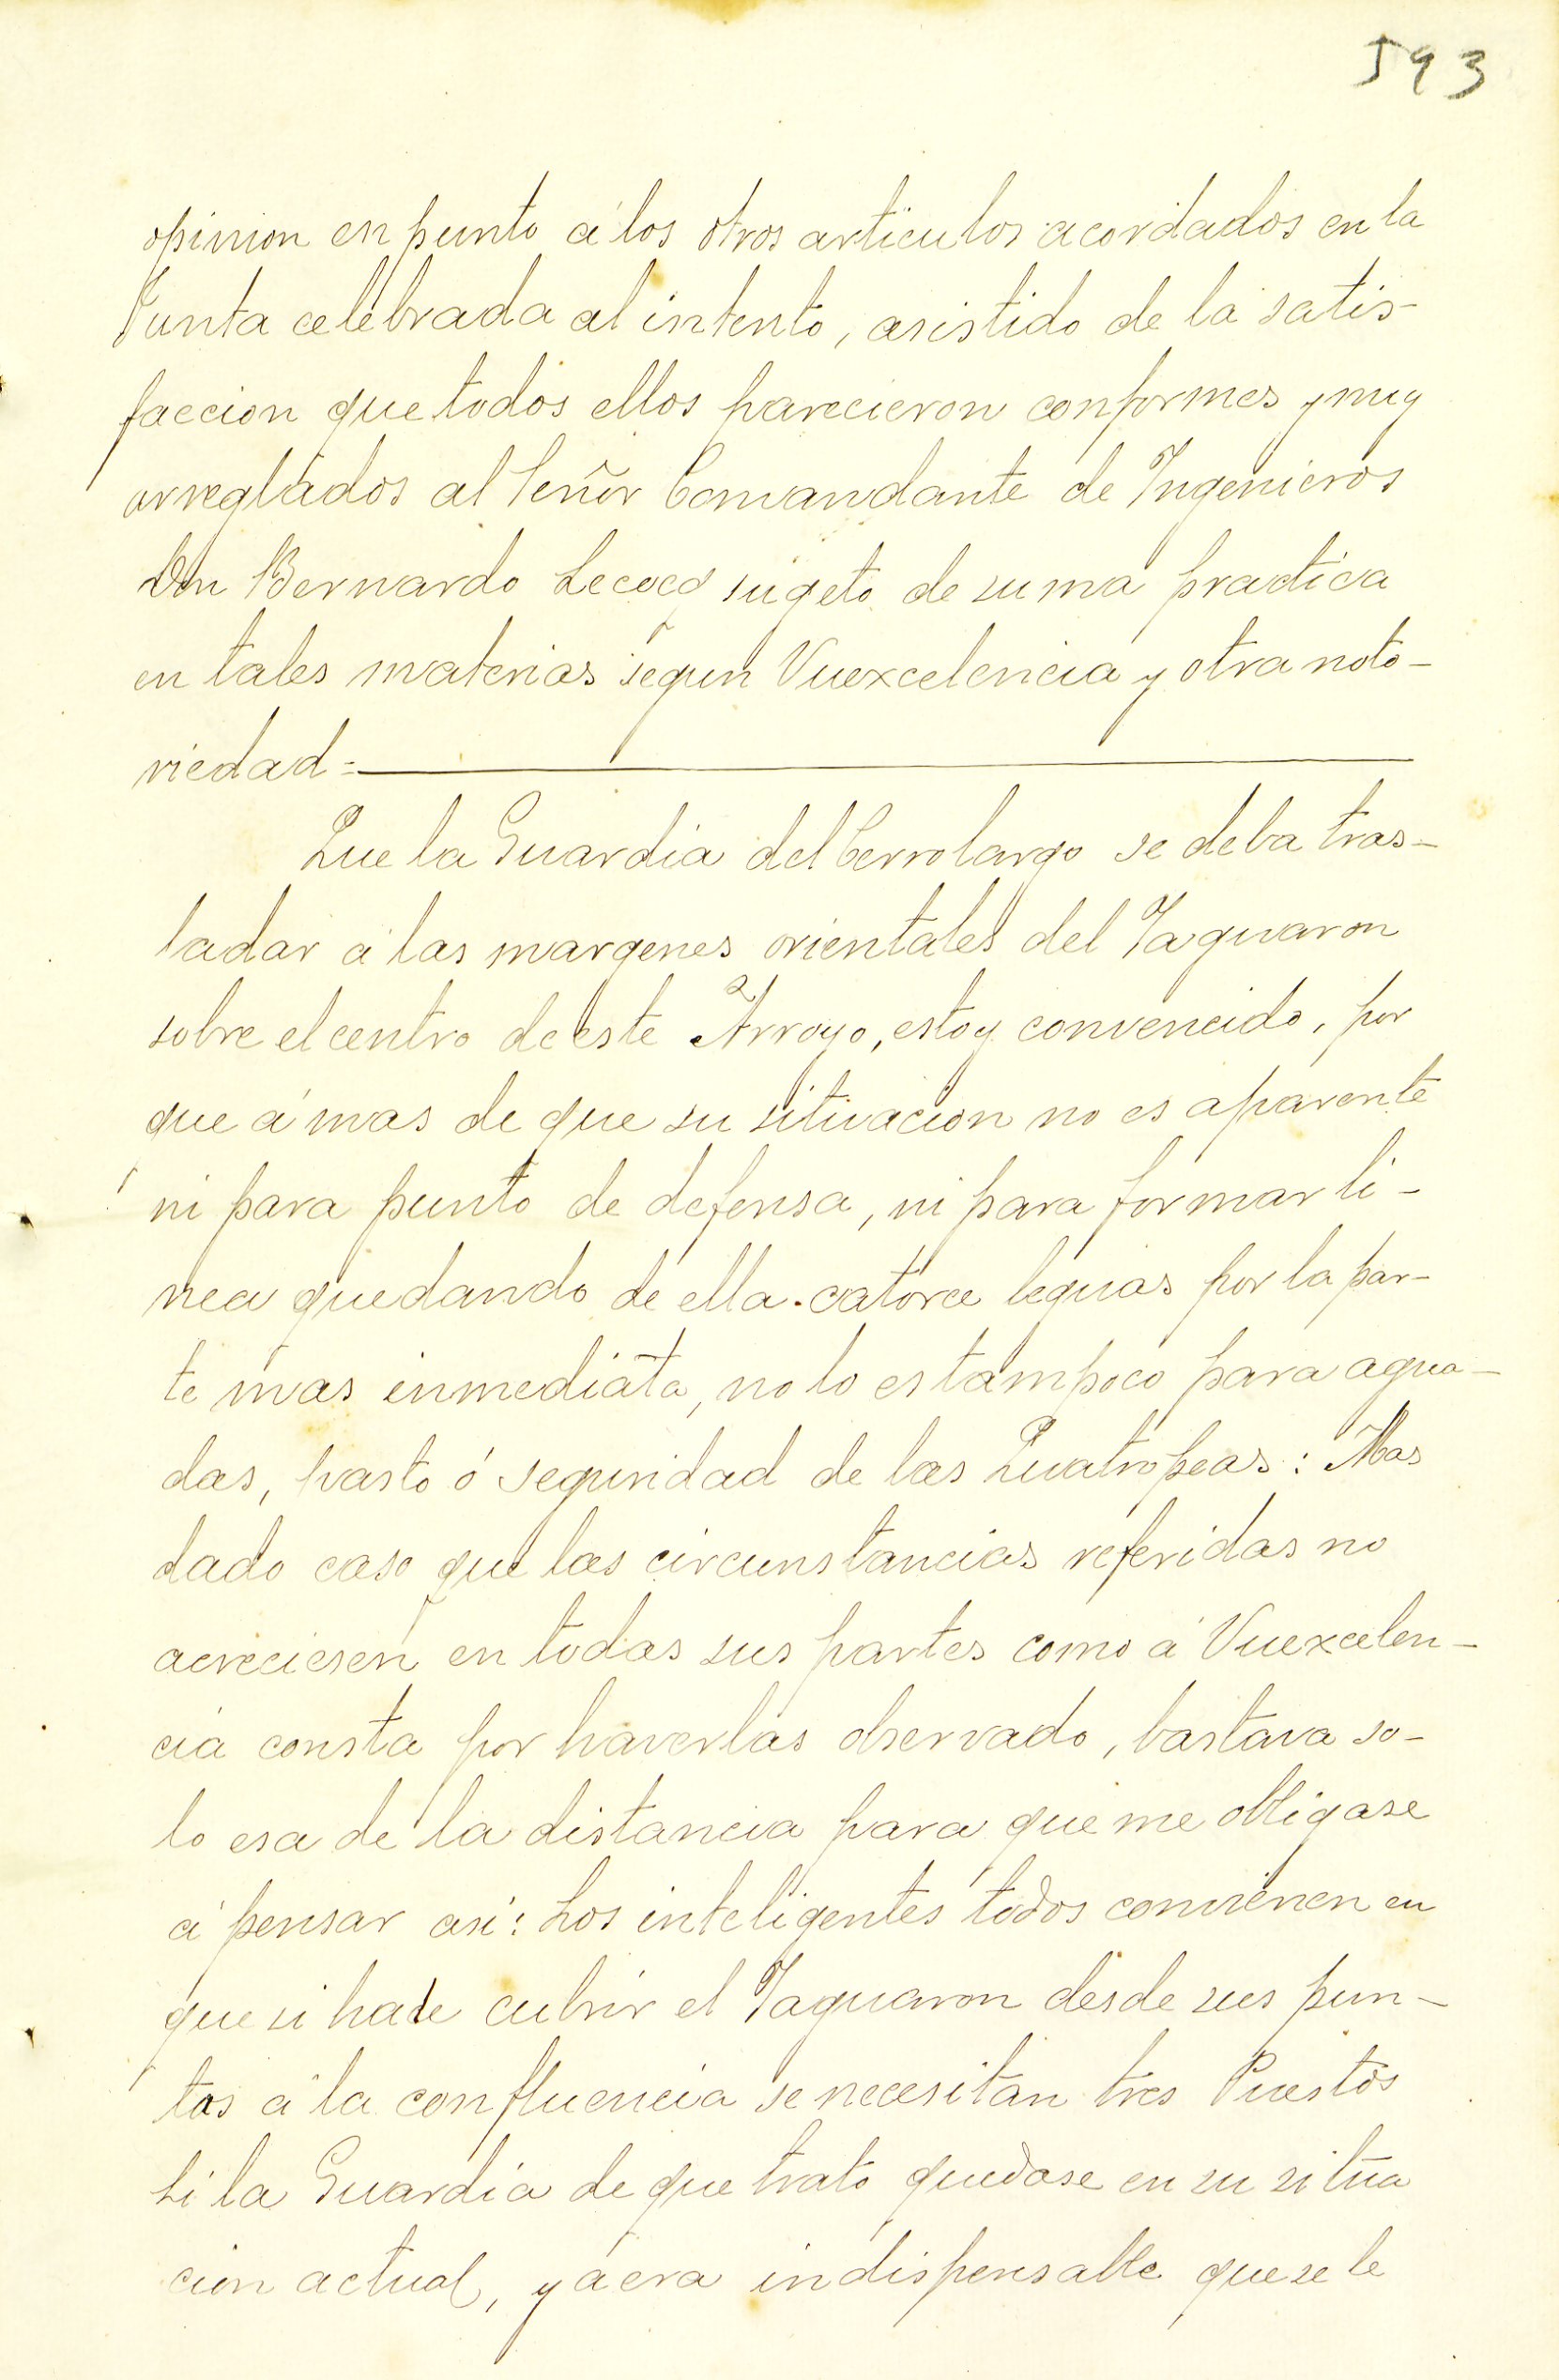 593
opinion en punto á los otros articulos acordados en la
Junta celebrada al intento, asistido de la satis-
faccion que todos ellos parecieron conformes y muy
arreglados al Señor Comandante de Ingenieros
Don Bernardo Lecocq sugeto de suma practica
en tales materias segun Vuexcelencia y otra noto-
riedad=
Que la Guardia del Cerrolargo se deba tras-
ladar á las margenes orientales del Yaguaron
sobre el centro de este Arroyo, estoy convencido, por
que á mas de que su situacion no es aparente
ni para punto de defensa, ni para formar li-
nea quedando de ella catorce leguas por la par-
te mas inmediata, no lo es tampoco para agua-
das, pasto ó seguridad de las Quatropeas: Mas
dado caso que las circunstancias referidas no
acreciesen en todas sus partes como á Vuexcelen-
cia consta por haverlas observado, bastava so-
lo esa de la distancia para que me obligase
á pensar asi: Los inteligentes todos convienen en
que si ha de cubrir el Yaguaron desde sus pun-
tas á la confluencia se necesitan tres Puestos
si la Guardia de que trato quedase en su situa
cion actual, y ácra indispensable que se le